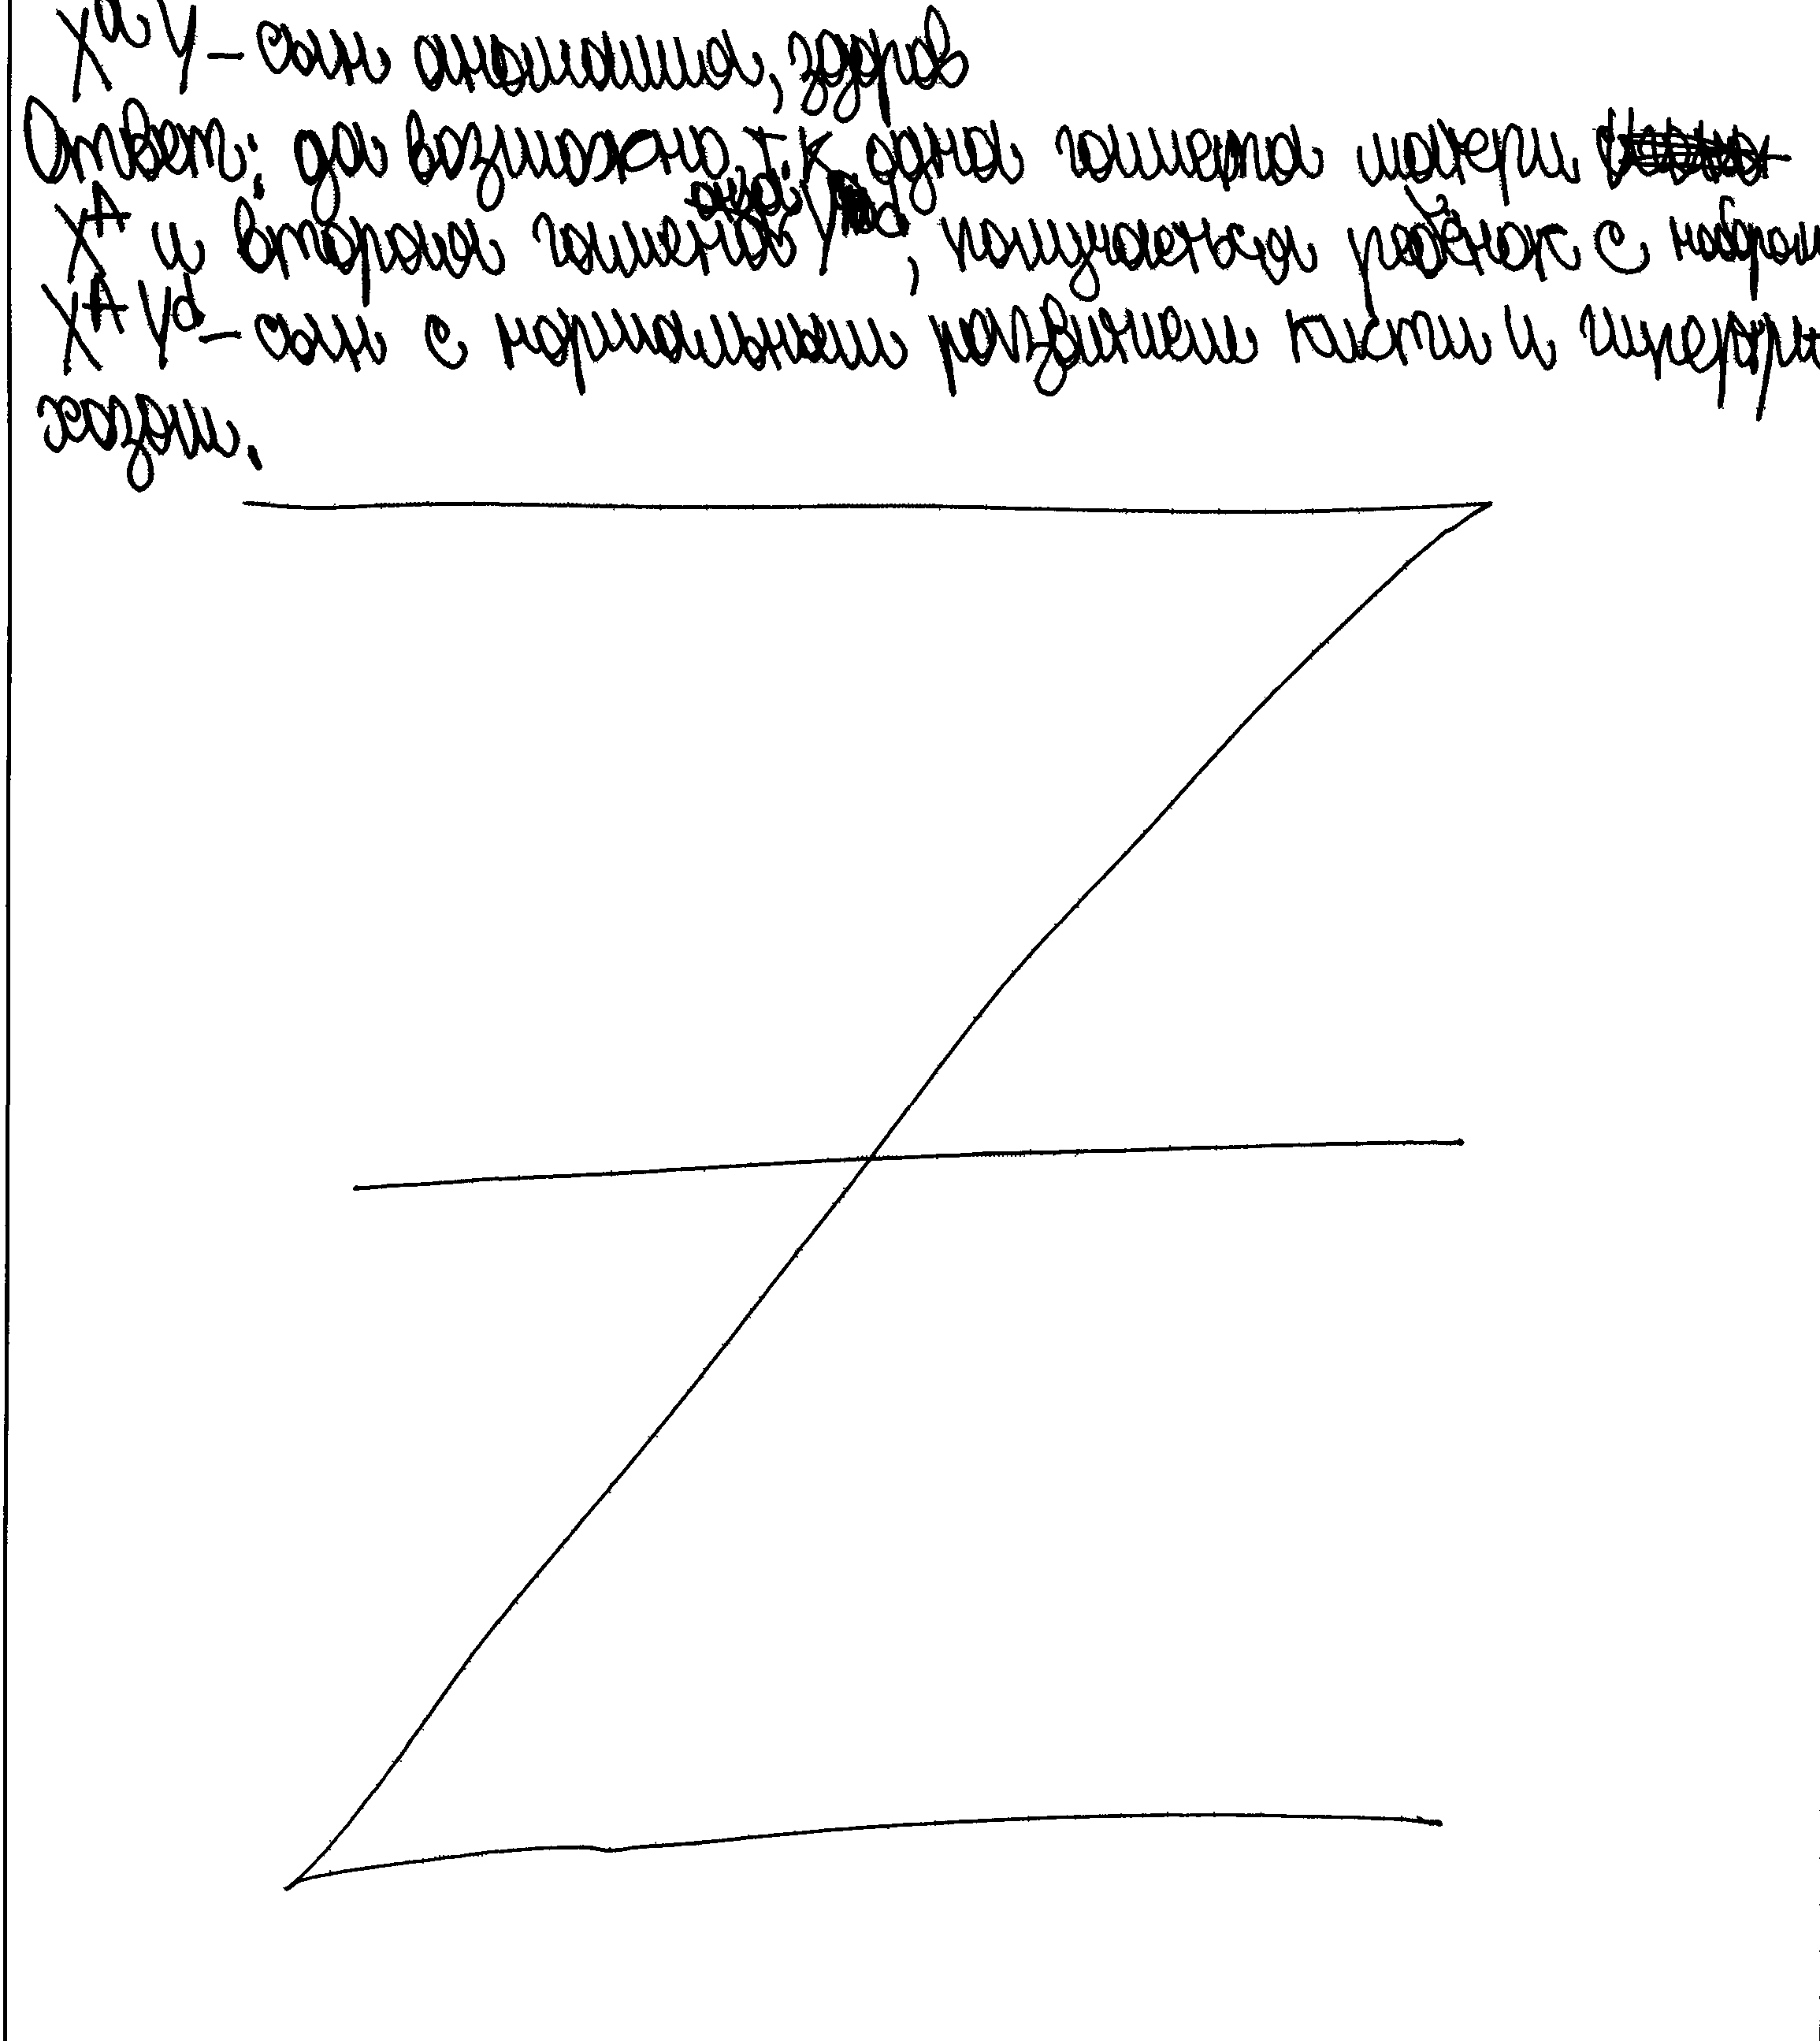 XᵃY – сын аномалия, здоров
Ответ: да возможно, т.к одна гамета матери
Xᴬ и вторая гамета отца Yᵈ, получаеться ребёнок с набором
XᴬYᵈ – сын с нормальным развитием кисти и